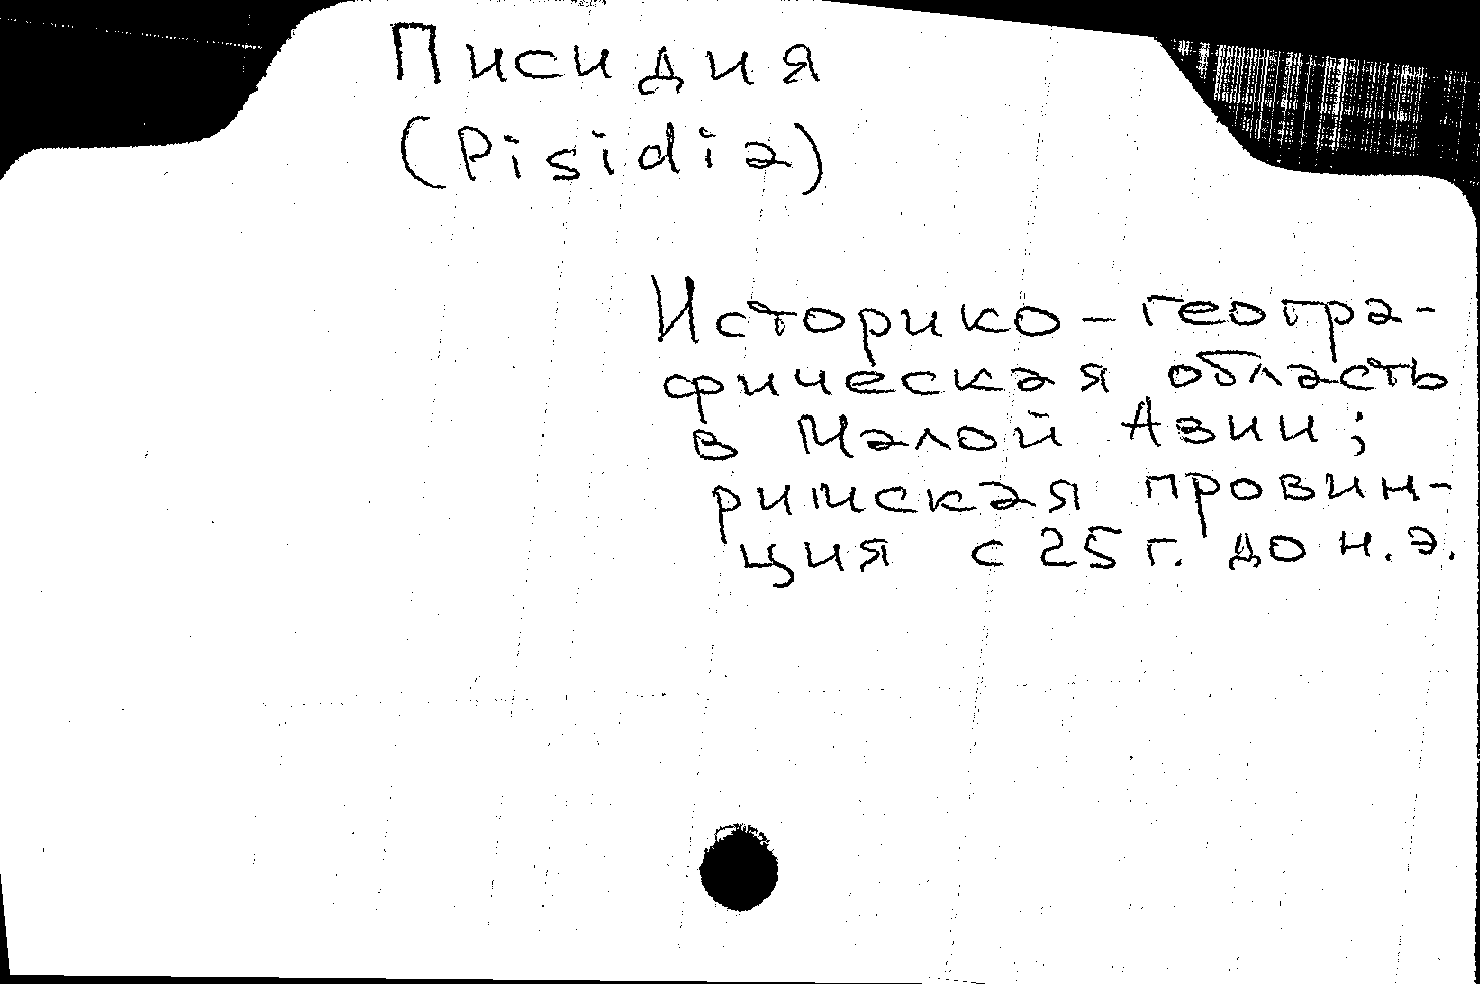 Писидия
(Pisidia)
Историко-геогра-
фическая область
в Малой Азии;
римская провин-
ция с 25 г. до н.э.